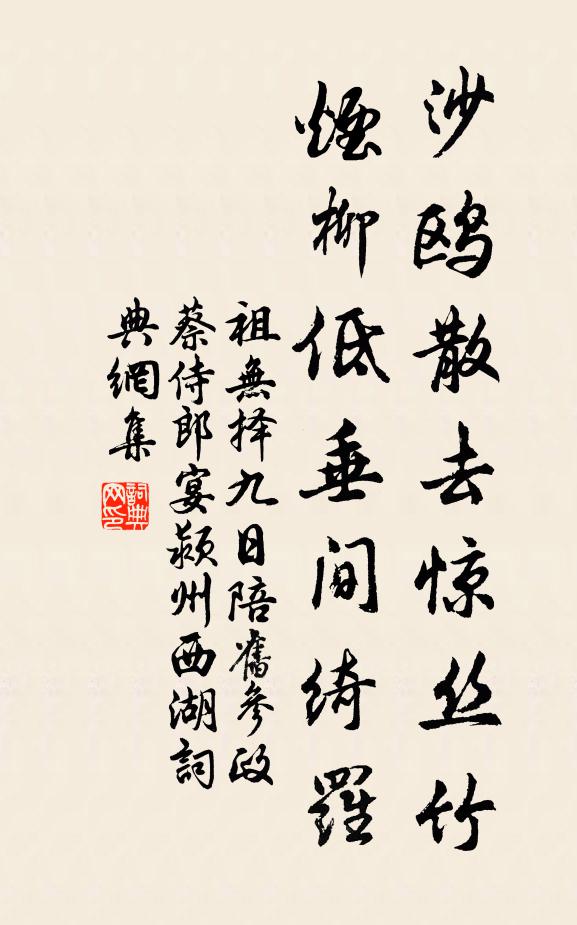 沙鸥散去惊丝竹
烟柳低垂间绮罗
祖無择九日陪旧參政
蔡侍郎宴颍州西湖詞
典網集
詞典網印